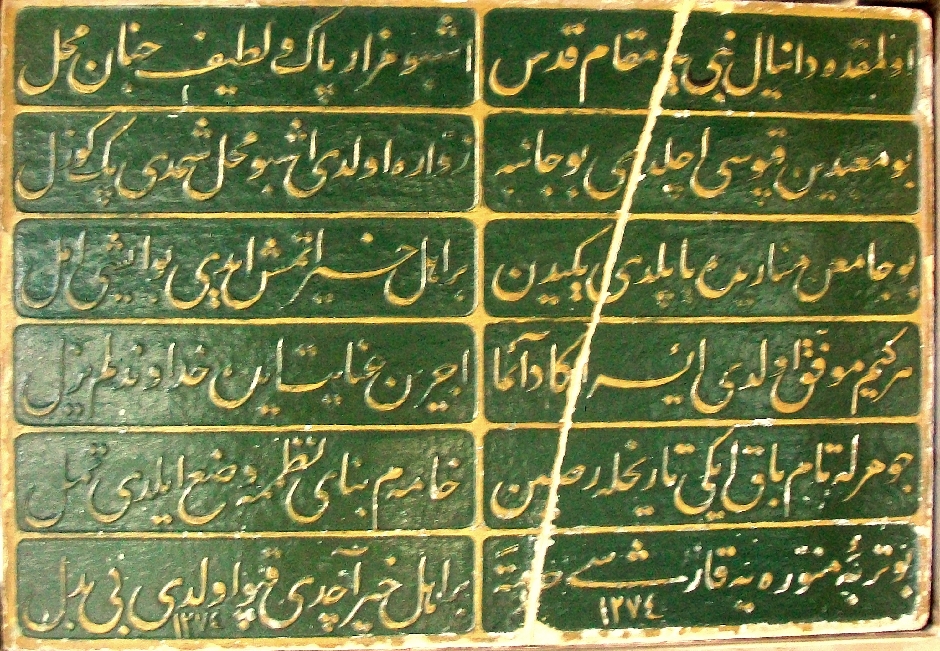 اولمقده دانیال نبی یه مقام قدس
اشبو مزار پاک و لطیف جنان محل
بو معبدین قپوسی اچلدی بو جانبه
زواره اولدی اشبو محل شمدی پک کوزل
بو جامعن مناره‌ده یاپلدی یکیدن
بر اهل خیر اتمش ایدی بو ایشی امل
هر کیم موفق اولدی ائسه اکا دائما
اجرن عنایت ایده خداوند لم یزل
جوهرله تام باق ایکی تاریخله رصین
خامه‌م بنای نظممه وضع ایلدی تمل
بو تربهٔ منوره یه قارشو سمت
١٢٧٤
بر اهل خیر آچدی قپو اولدی بی بدل
١٢٧٤